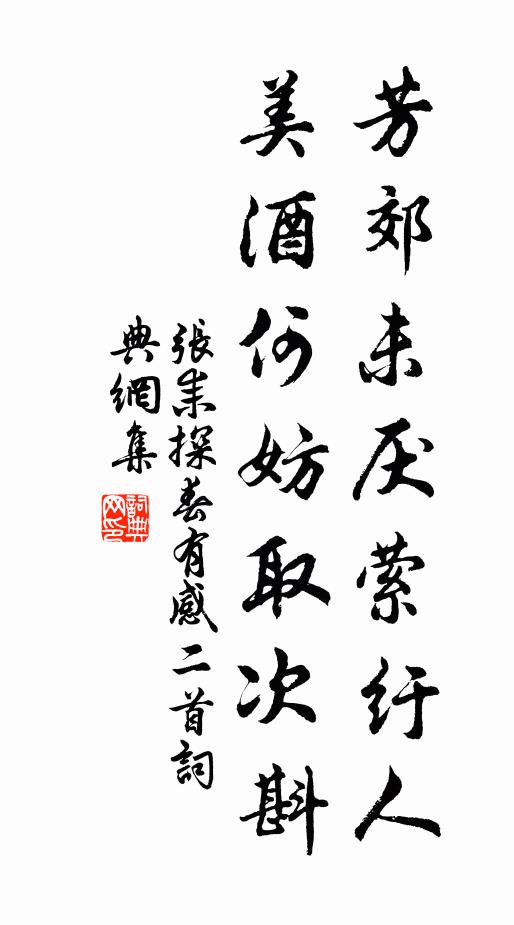 芳郊未厌萦纡人
美酒何妨取次斟
張耒探春有感二首詞
典網集
詞典
网印